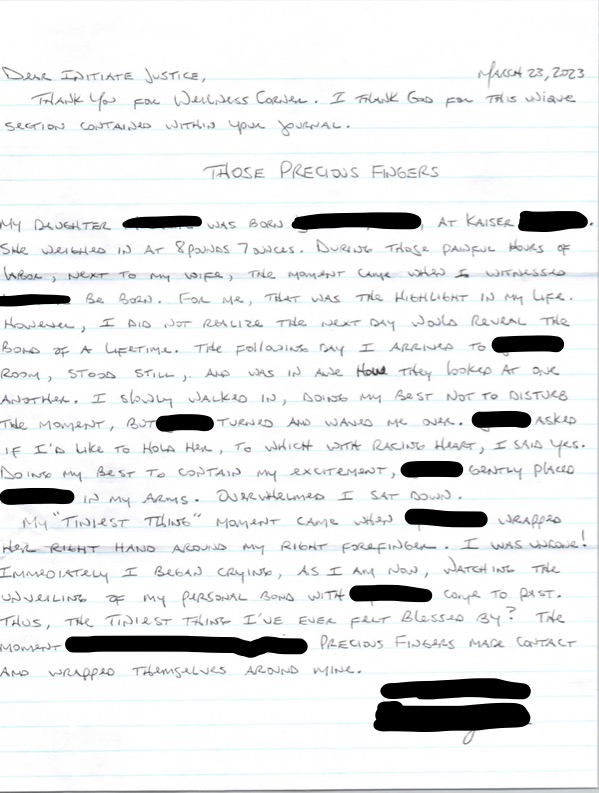 Dear Initiate Justice, March 23, 2023
Thank you for Wellness Corner. I thank God for this unique
section contained within your journal.
Those Precious Fingers
My daughter was born , at Kaiser .
She weighed in at 8 pounds 7 ounces. During those painful hours of
labor, next to my wife, the moment came when I witnessed
be born. For me, that was the highlight in my life.
However, I did not realize the next day would reveal the
bond of a lifetime. The following day I arrived to
room, stood still, and was in awe how they looked at one
another. I slowly walked in, doing my best not to disturb
the moment, but turned and waved me over. asked
if I'd like to hold her, to which with racing heart, I said yes.
Doing my best to contain my excitement, gently placed
in my arms. Overwhelmed I sat down.
My "Tiniest Thing" moment came when wrapped
her right hand around my right forefinger. I was undone!
Immediately I began crying, as I am now, watching the
unveiling of my personal bond with come to past.
Thus, the tiniest thing I've ever felt blessed by? The
moment precious fingers made contact
and wrapped themselves around mine.